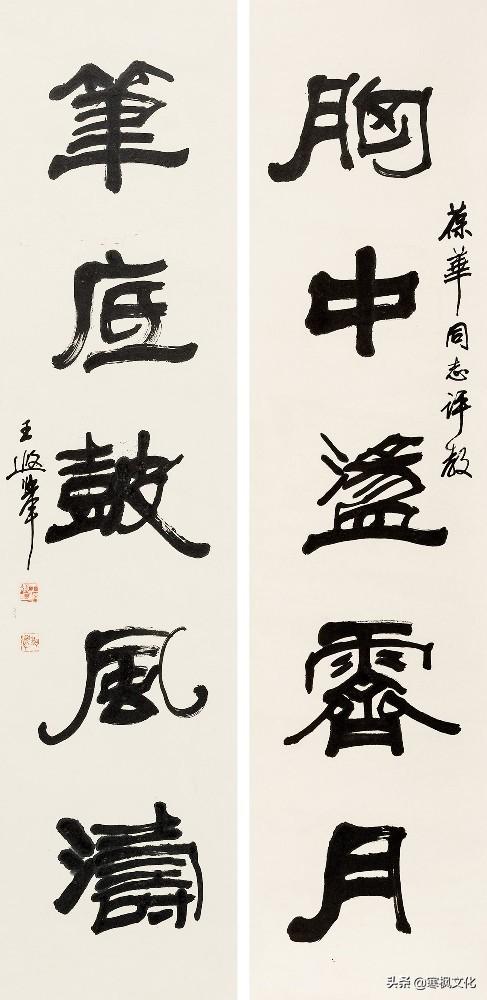 葆華同志评教
胸中盪霽月
筆底皷風濤
王遐舉
头条 @寒枫文化